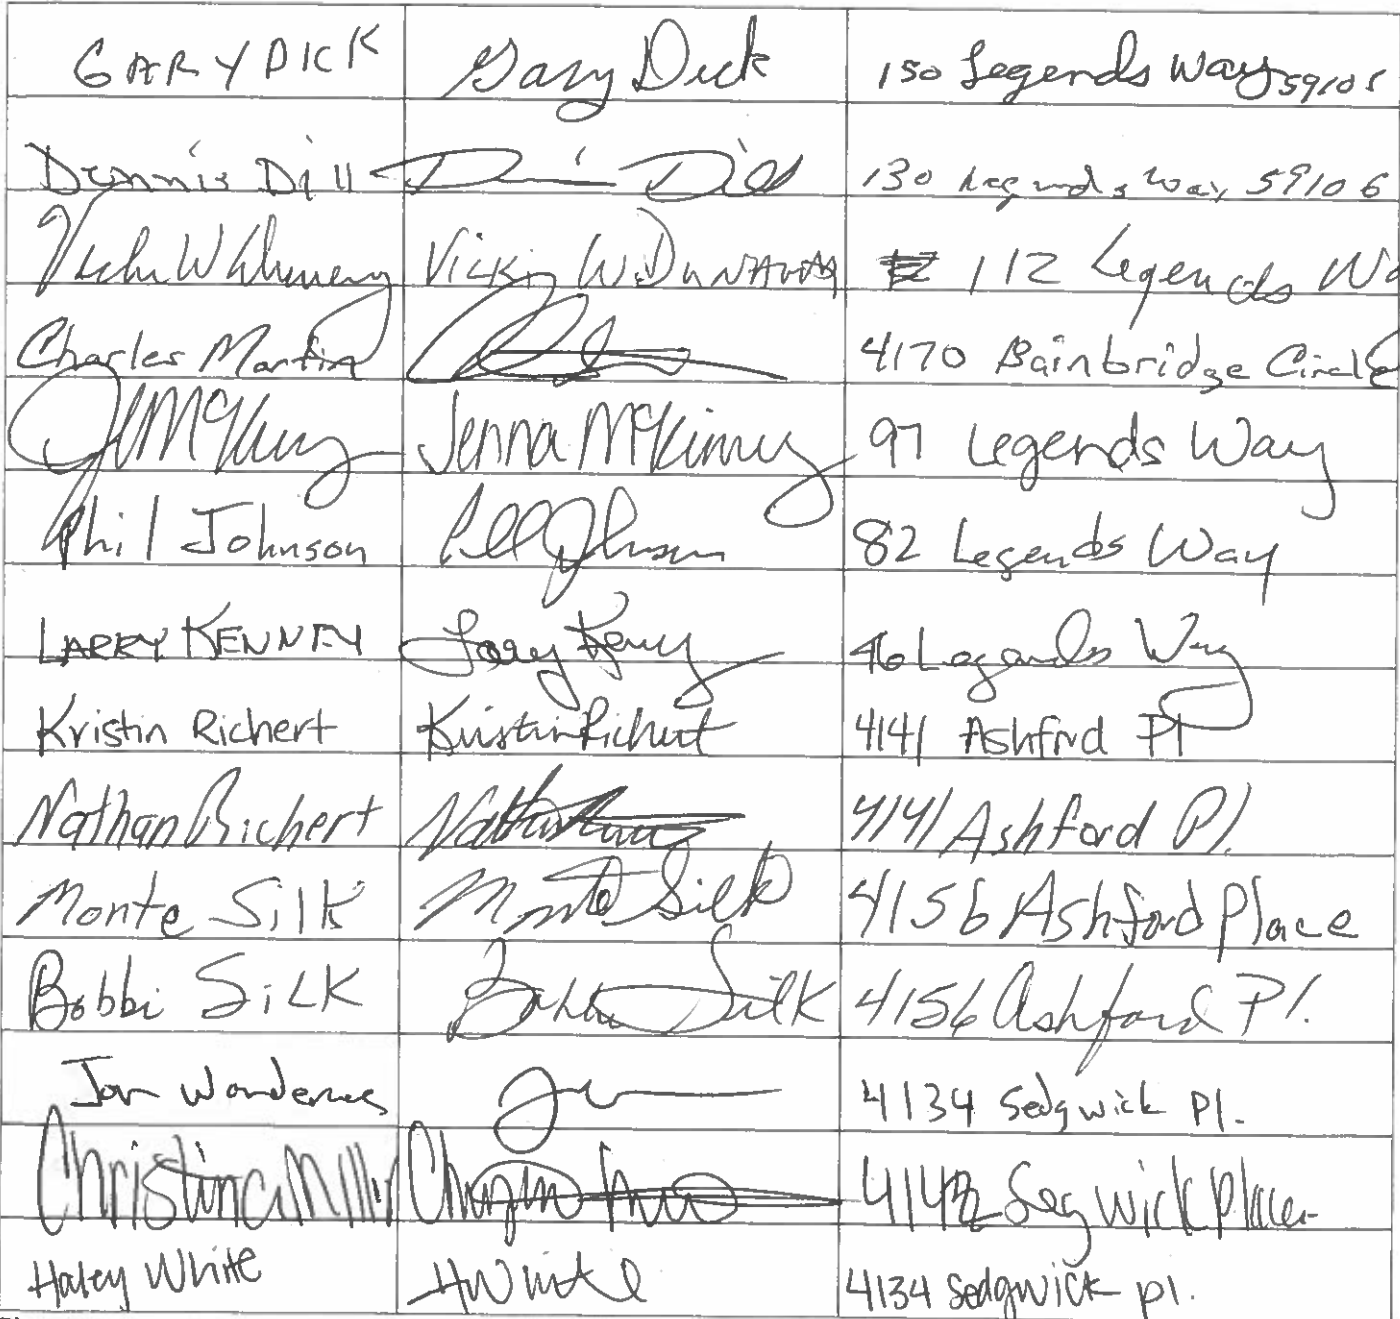 GARY DICK Gary Dick 150 Legends Way 59105
Dennis Dill Dennis Dill 130 Legends Way 59106
Vicki W Vicki W. Dunaway 112 Legends Wa
Charles Martin 4170 Bainbridge Circle
J McKinney Jenna McKinney 97 Legends Way
Phil Johnson Phil Johnson 82 Legends Way
LARRY KENNEY Larry Kenney 46 Legends Way
Kristin Richert Kristin Richert 4141 Ashford Pl
Nathan Richert Nathan 4141 Ashford Pl.
Monte Silk Monte Silk 4156 Ashford Place
Bobbi SiLK Bobbi Silk 4156 Ashford Pl.
Jon 4134 Sedgwick Pl.
Christina Miller Segwick Place
Haley White HWhite 4134 Sedgwick pl.